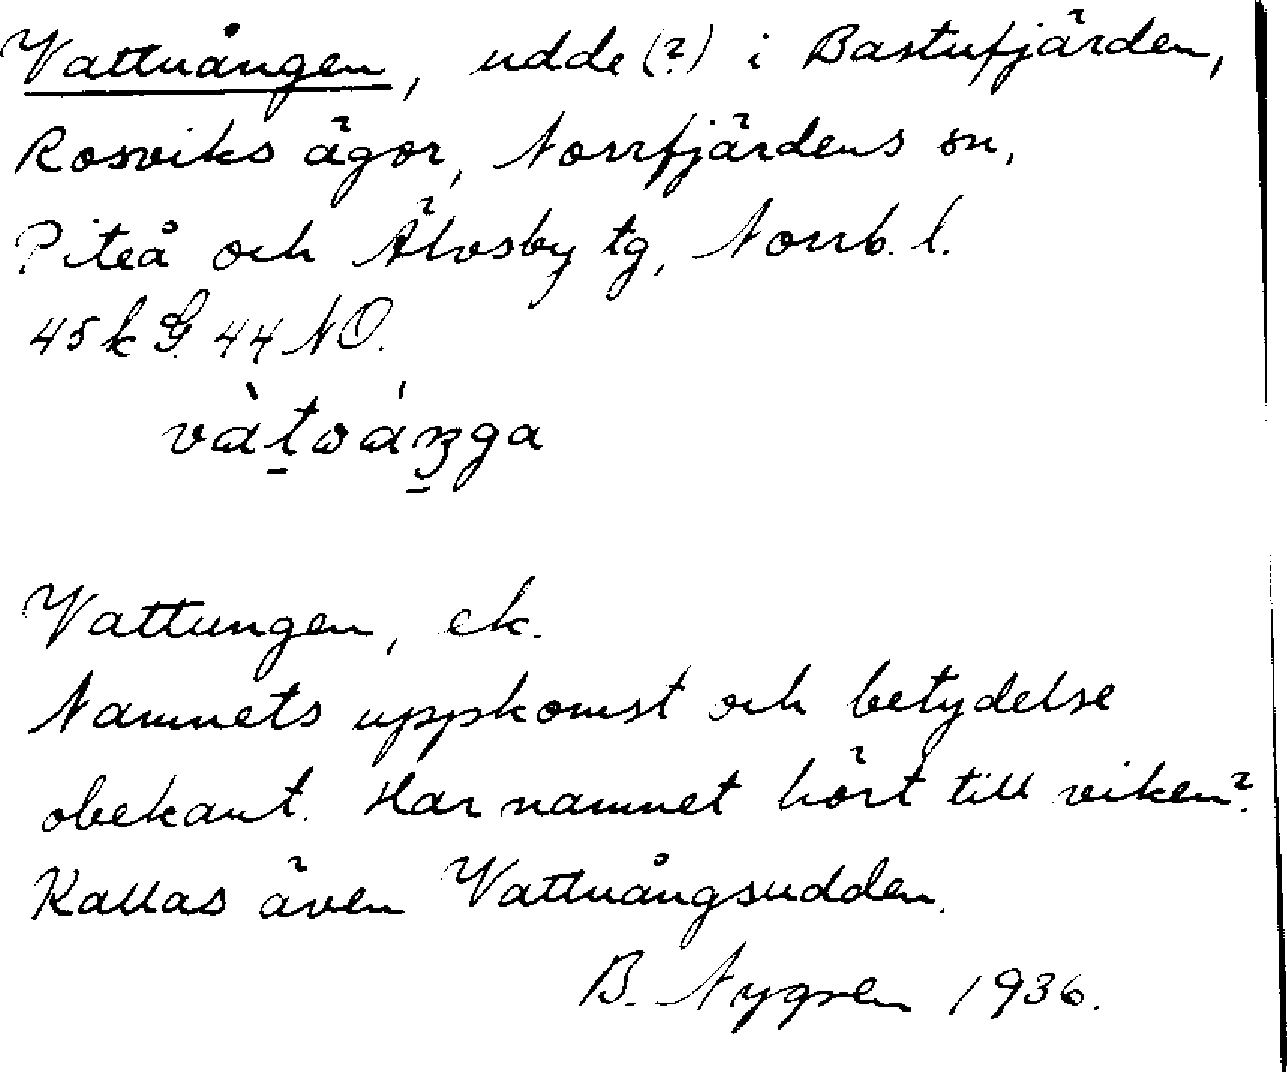 Vattuången, udde (?) i Bastufjärden,
Rosviks ägor, Norrfjärdens sn,
Piteå och Älvsby tg, Norrb. l.
45 k G. 44 NO.
Vattungen, ek.
Namnets uppkomst och betydelse
obekant. Har namnet hört till viken?
Kallas även Vattuångsudden.
B. Nygren 1936.